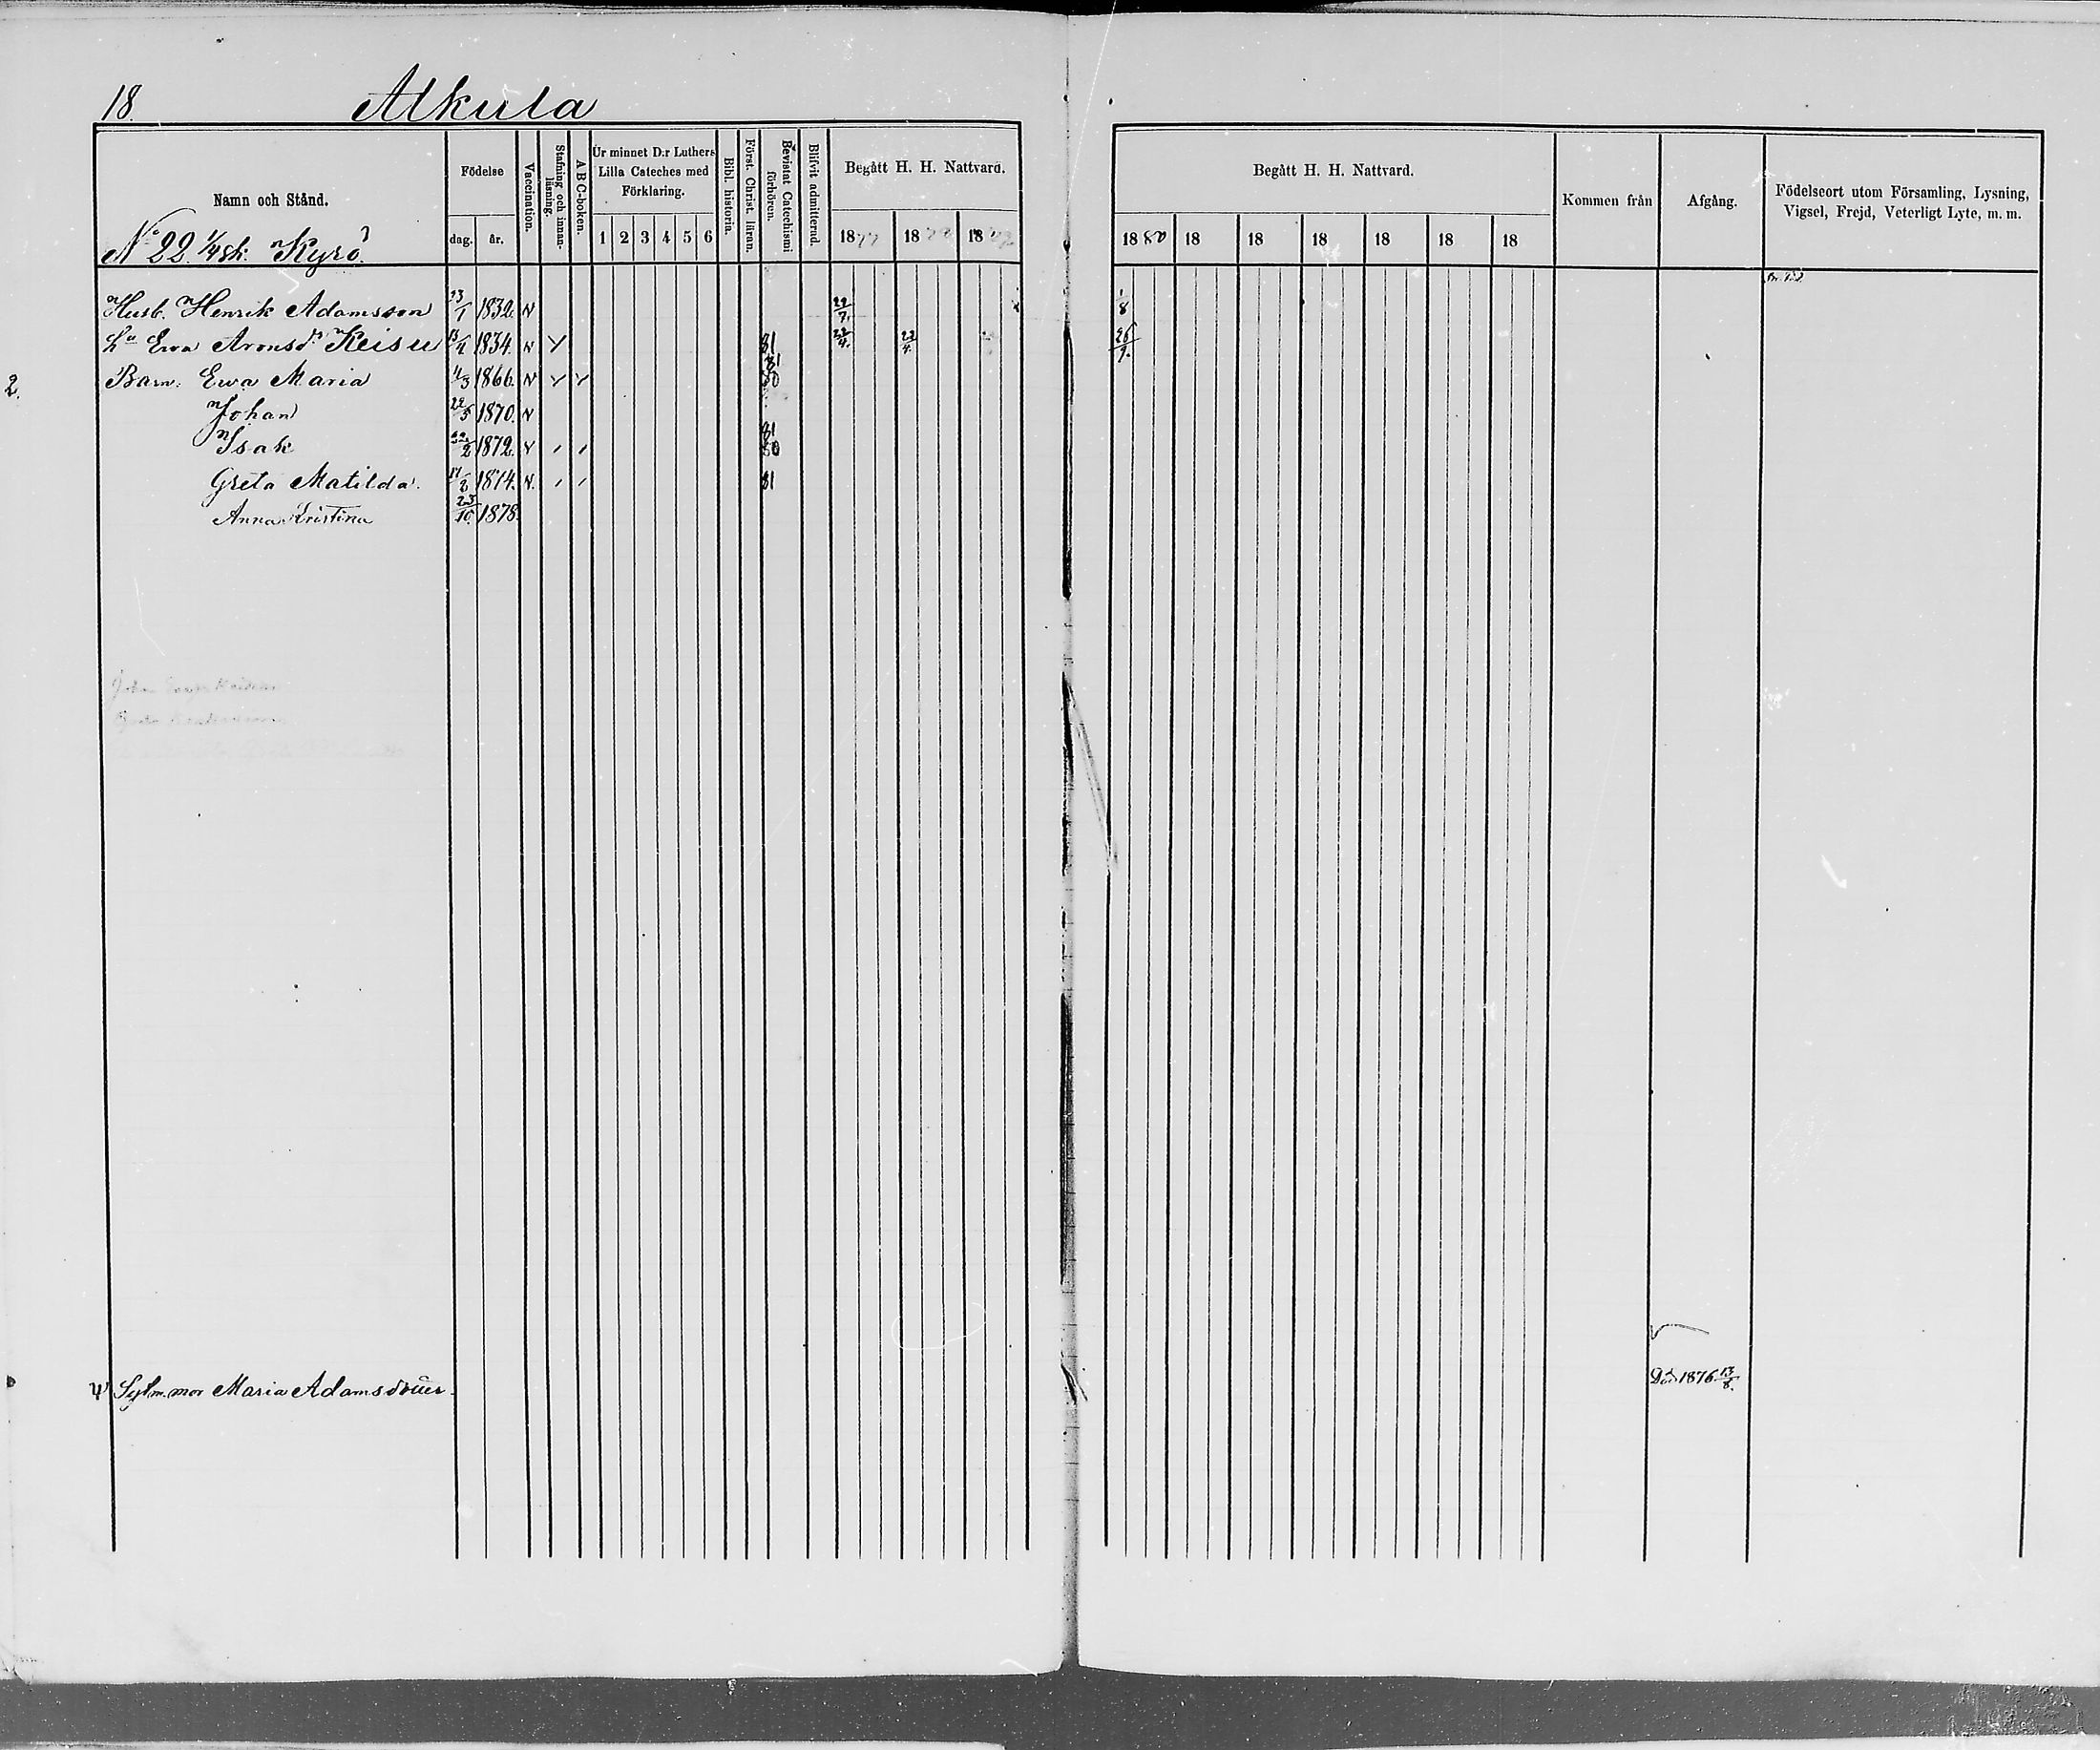 18. Alkula
Namn och Stånd.
Födelse
dag. år.
Vaccination.
Stafning och innan-
läsning.
ABC-boken.
Ur minnet D:r Luthers
Lilla Cateches med
Förklaring.
1 2 3 4 5 6
Bibl. historia.
Först. Christ. läran.
Bevistat Catechismi
förhören.
Blifvit admitterad.
Begått H. H. Nattvard.
1877 18 18
Begått H. H. Nattvard.
1880 18 18 18 18 18 18
Kommen från
Afgång.
Födelseort utom Församling, Lysning,
Vigsel, Frejd, Veterligt Lyte, m. m.
No 22. 1/4 sk. Kyrö.
Husb. Henrik Adamsson 23/1 1832. 1/8
Hu Ewa Aronsdr Keisu 1834. 81 22/4. 22/4. 26/9.
2. Barn: Ewa Maria 4/3 1866. 81 80
Johan 22/5 1870.
Isak 22/2 1872. 81 80
Greta Matilda. 1874. 81
Anna Kristina 23/10 1878.
Sytn. mor Maria Adamsdotter Död 1876 13/8.